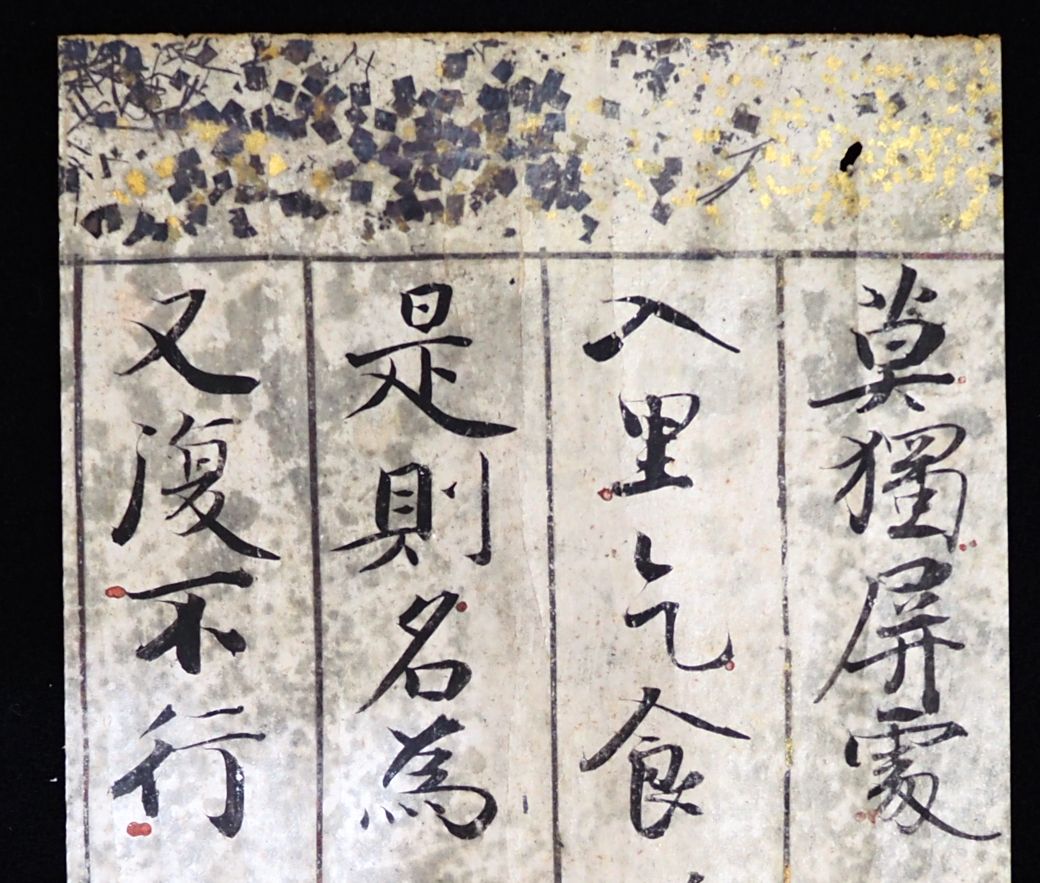 莫獨屏處
入里乞食
是則名為
又復不行